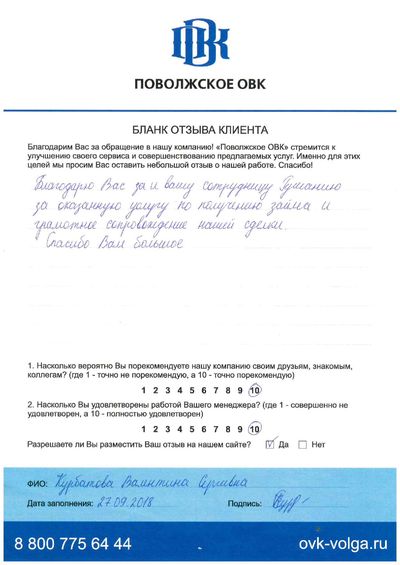 ОВК
ПОВОЛЖСКОЕ ОВК
БЛАНК ОТЗЫВА КЛИЕНТА
Благодарим Вас за обращение в нашу компанию! «Поволжское ОВК» стремится к
улучшению своего сервиса и совершенствованию предлагаемых услуг. Именно для этих
целей мы просим Вас оставить небольшой отзыв о нашей работе. Спасибо!
Благодарю Вас за и вашу сотрудницу
за оказанную услугу по получению займа и
грамотное сопровождение нашей сделки
Спасибо Вам большое
1. Насколько вероятно Вы порекомендуете нашу компанию своим друзьям, знакомым,
коллегам? (где 1 - точно не порекомендую, а 10 - точно порекомендую)
1 2 3 4 5 6 7 8 9 10
2. Насколько Вы удовлетворены работой Вашего менеджера? (где 1 - совершенно не
удовлетворен, а 10 - полностью удовлетворен)
1 2 3 4 5 6 7 8 9 10
Разрешаете ли Вы разместить Ваш отзыв на нашем сайте? Да Нет
ФИО: Курбатова Валентина Сергеевна
Дата заполнения: 27.09.2018 Подпись:
8 800 775 64 44 ovk-volga.ru